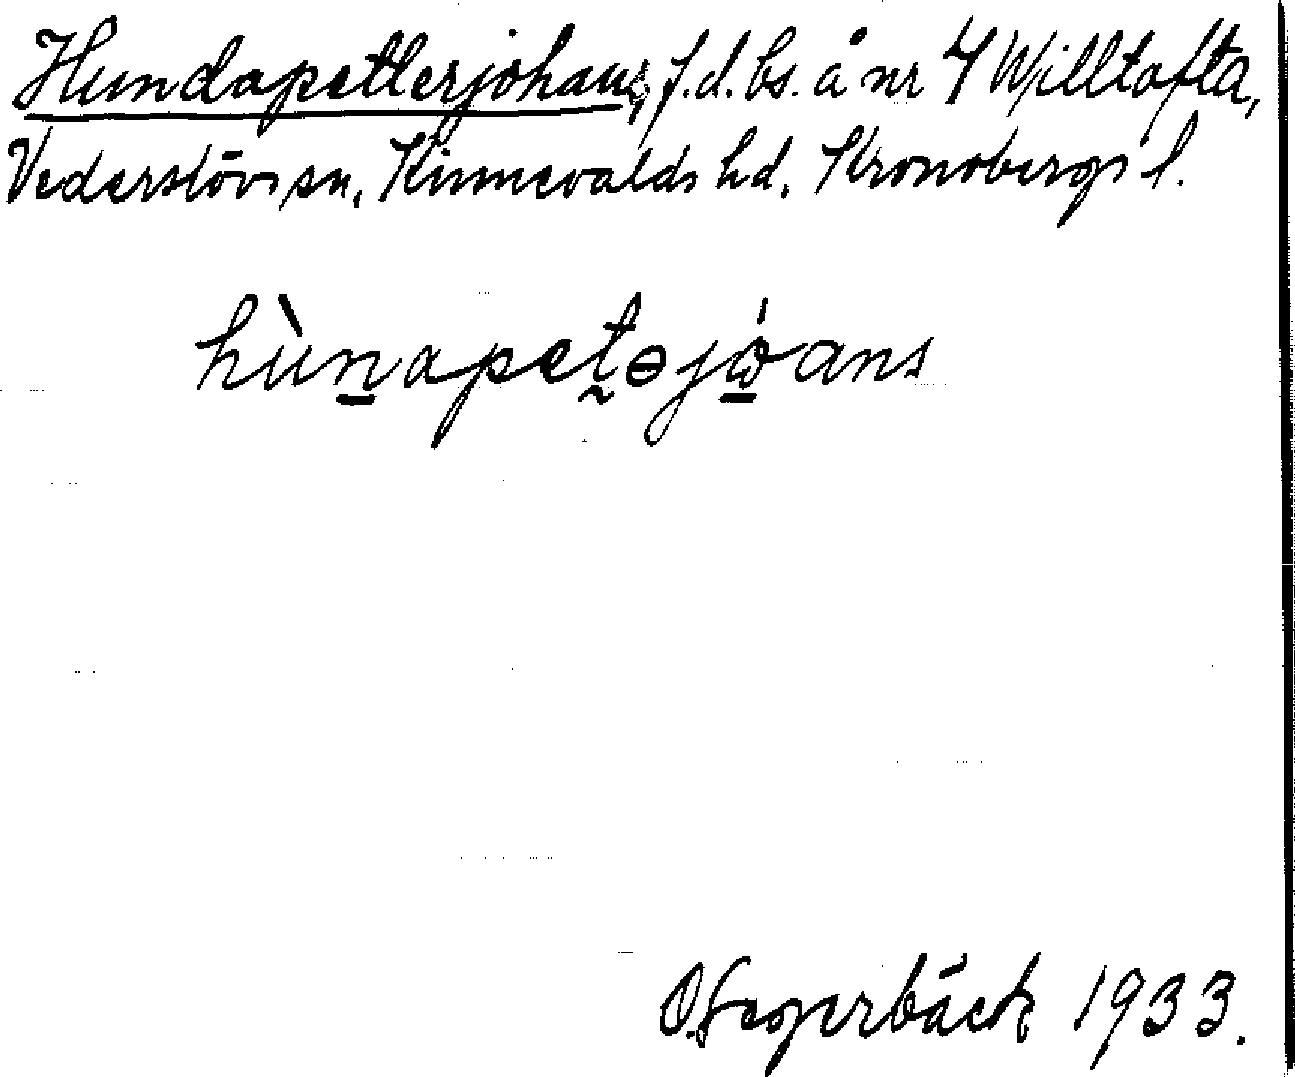 Hundapetterjohans, f.d. bs. å nr 4 Willtofta,
Vederslövs sn, Kinnevalds hd. Kronobergs l.
hùn̲apet̰əjώ̲ans
O. Fagerbäck 1933.